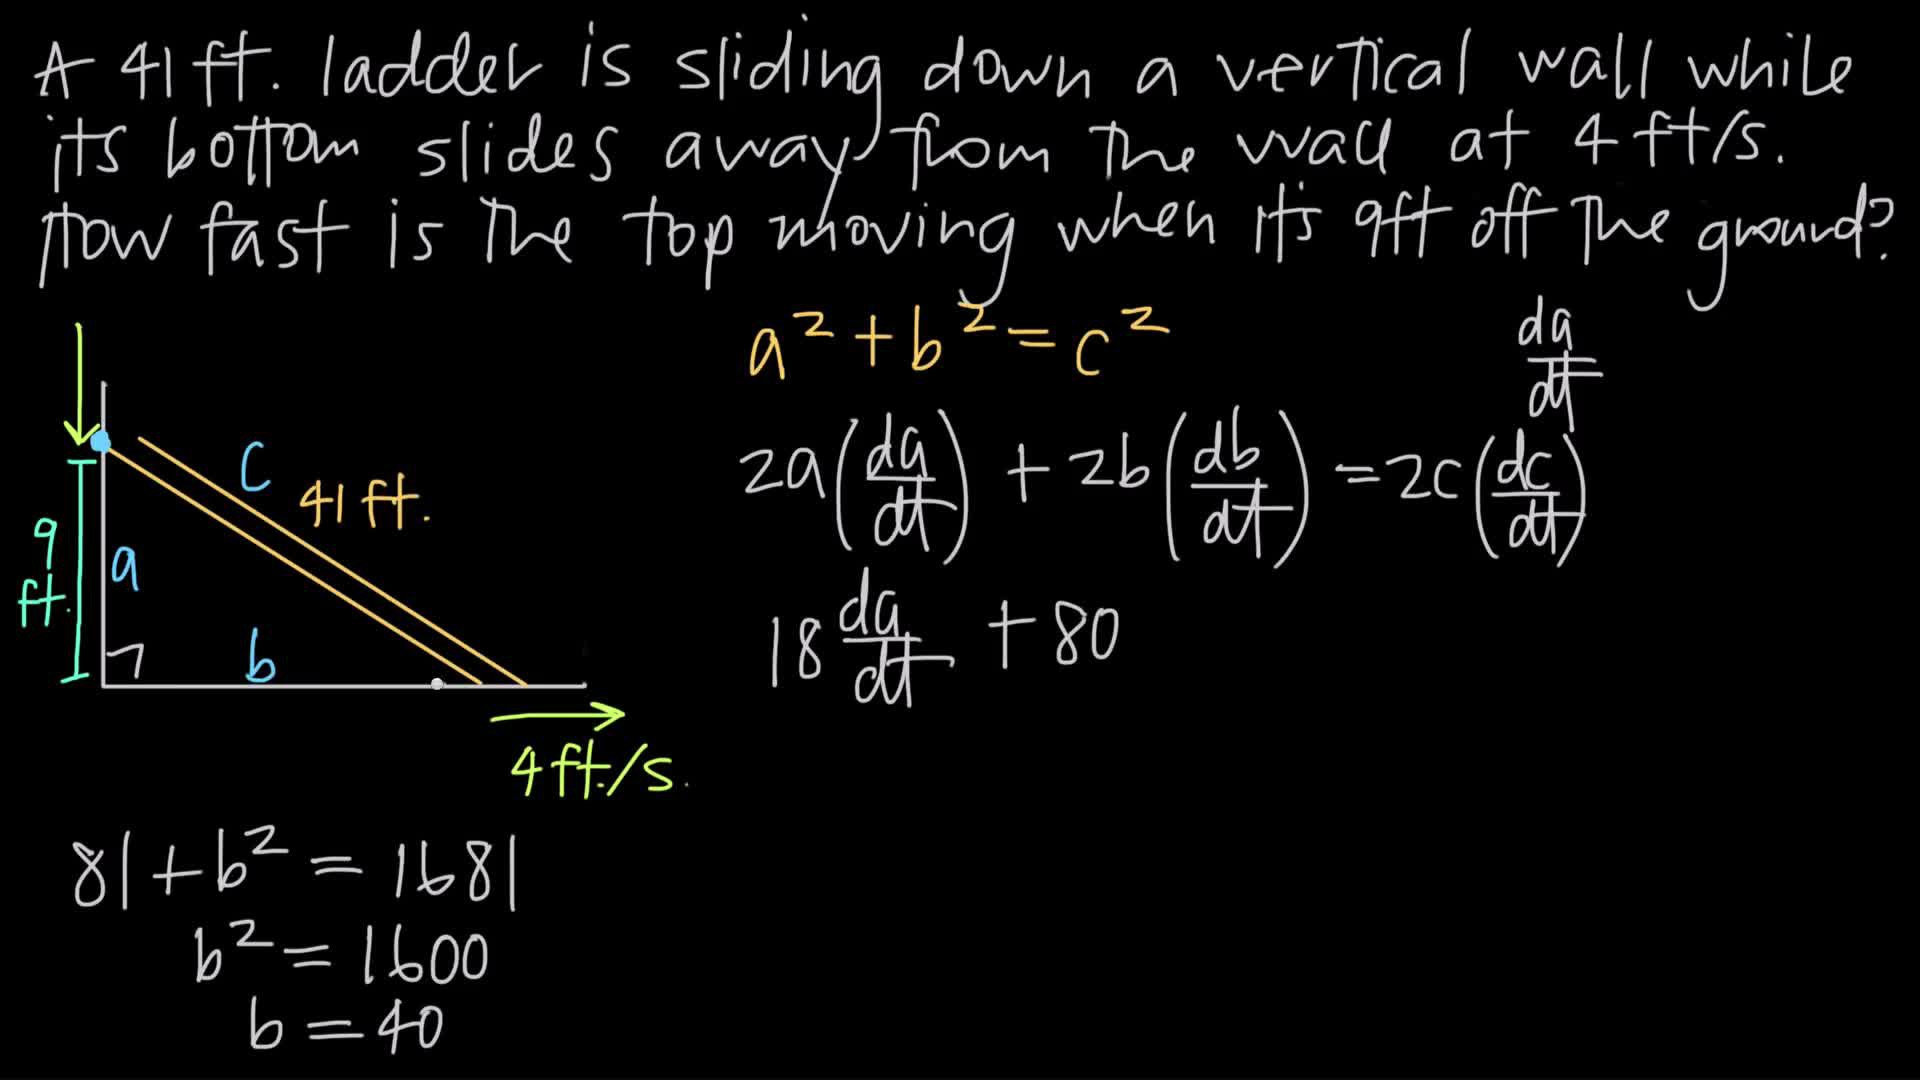 A 41 ft. ladder is sliding down a vertical wall while
its bottom slides away from the wall at 4 ft/s.
How fast is the top moving when it's 9ft off the ground?
a² + b² = c²
da/dt
2a(da/dt) + 2b(db/dt) = 2c(dc/dt)
18 da/dt + 80
c
41 ft.
9 ft.
a
b
4 ft./s.
81 + b² = 1681
b² = 1600
b = 40